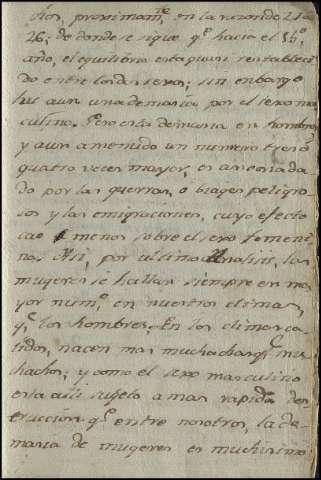 ños, proximam.te en la razon de 21 a
26; de donde se sigue q.e hacia el 15.o
año, el equilibrio esta quasi restableci
do entre los dos sexos; sin enbargo
hai aun una demasia por el sexo ma
culino. Pero esta demasia en hombres,
y aun amenudo un numero tres o
quatro veces mayor, es
do por las guerras, o viages peligro
sos y las emigraciones, cuyo efecto
cae menos sobre el sexo femeni
no. Asi, por ultimo analisis, las
mugeres se hallan siempre en ma
yor num.o en nuestros climas,
q.e los hombres. En los climas ca
lidos, nacen mas muchachas q.e mu
chachos; y como el sexo masculino
esta alli sujeto a mas rapida des
truccion q.e entre nosotros, la de
masia de mugeres es muchisimo